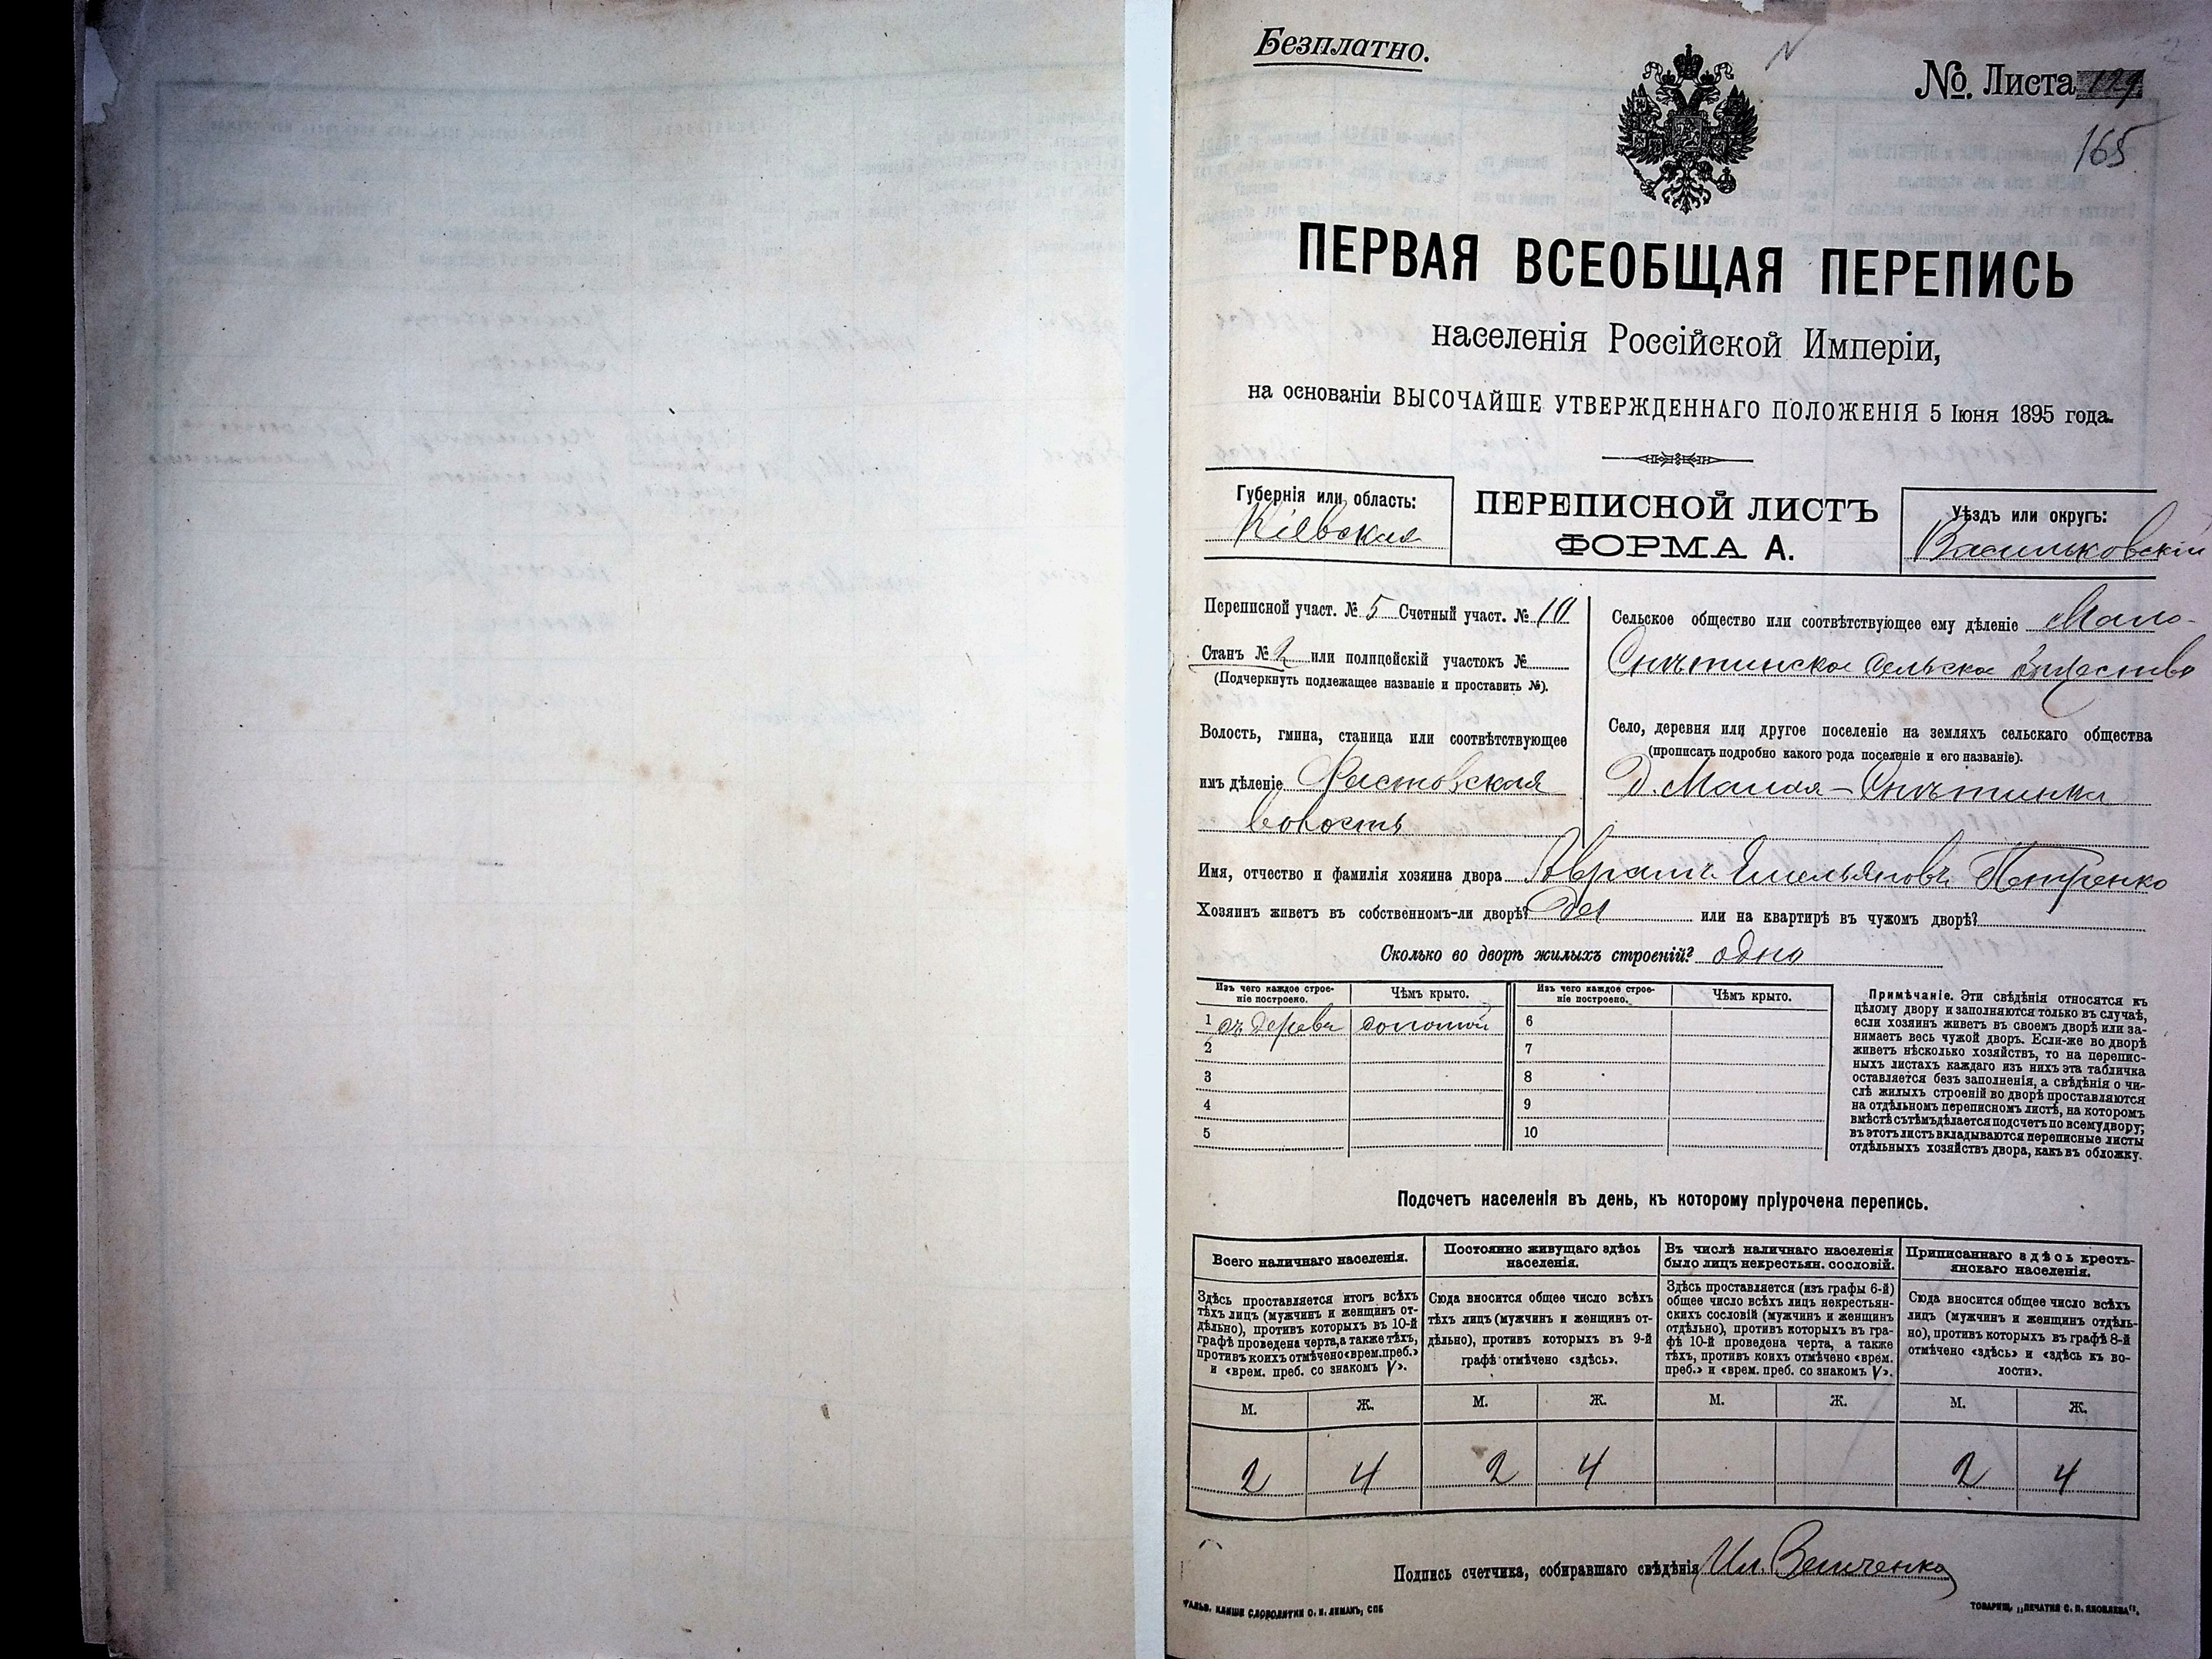 Безплатно.
№. Листа 129
165
ПЕРВАЯ ВСЕОБЩАЯ ПЕРЕПИСЬ
населенія Россійской Имперіи,
на основаніи ВЫСОЧАЙШЕ УТВЕРЖДЕННАГО ПОЛОЖЕНІЯ 5 Іюня 1895 года.
Губернія или область:
Кіевская
ПЕРЕПИСНОЙ ЛИСТЪ
ФОРМА А.
Уѣздъ или округъ:
Васильковскій
Переписной участ. № 5 Счетный участ. № 10
Станъ № 2 или полицейскій участокъ №
(Подчеркнуть подлежащее названіе и проставить №).
Волость, гмина, станица или соотвѣтствующее
имъ дѣленіе Фастовская
волость
Сельское общество или соотвѣтствующее ему дѣленіе Мало-
Снѣтинское сельское общество
Село, деревня или другое поселеніе на земляхъ сельскаго общества
(прописать подробно какого рода поселеніе и его названіе).
Д. Малая-Снѣтинка
Имя, отчество и фамилія хозяина двора Аврамъ Емельяновъ Петренко
Хозяинъ живетъ въ собственномъ-ли дворѣ? Да или на квартирѣ въ чужомъ дворѣ?
Сколько во дворѣ жилыхъ строеній? одно
Изъ чего каждое строе-
ніе построено.
Чѣмъ крыто.
Изъ чего каждое строе-
ніе построено.
Чѣмъ крыто.
1 дерева соломой 6
2 7
3 8
4 9
5 10
Примѣчаніе. Эти свѣдѣнія относятся къ
цѣлому двору и заполняются только въ случаѣ,
если хозяинъ живетъ въ своемъ дворѣ или за-
нимаетъ весь чужой дворъ. Если-же во дворѣ
живетъ нѣсколько хозяйствъ, то на перепис-
ныхъ листахъ каждаго изъ нихъ эта табличка
оставляется безъ заполненія, а свѣдѣнія о чи-
слѣ жилыхъ строеній во дворѣ проставляются
на отдѣльномъ переписномъ листѣ, на которомъ
вмѣстѣ съ тѣмъ дѣлается подсчетъ по всему двору;
въ этотъ листъ вкладываются переписные листы
отдѣльныхъ хозяйствъ двора, какъ въ обложку.
Подсчетъ населенія въ день, къ которому пріурочена перепись.
Всего наличнаго населенія.
Здѣсь проставляется итогъ всѣхъ
тѣхъ лицъ (мужчинъ и женщинъ от-
дѣльно), противъ которыхъ въ 10-й
графѣ проведена черта, а также тѣхъ,
противъ коихъ отмѣчено «врем. преб.»
и «врем. преб. со знакомъ V».
Постоянно живущаго здѣсь
населенія.
Сюда вносится общее число всѣхъ
тѣхъ лицъ (мужчинъ и женщинъ от-
дѣльно), противъ которыхъ въ 9-й
графѣ отмѣчено «здѣсь».
Въ числѣ наличнаго населенія
было лицъ некрестьян. сословій.
Здѣсь проставляется (изъ графы 6-й)
общее число всѣхъ лицъ некрестьян-
скихъ сословій (мужчинъ и женщинъ
отдѣльно), противъ которыхъ въ гра-
фѣ 10-й проведена черта, а также
тѣхъ, противъ коихъ отмѣчено «врем.
преб.» и «врем. преб. со знакомъ V».
Приписаннаго здѣсь кресть-
янскаго населенія.
Сюда вносится общее число всѣхъ
лицъ (мужчинъ и женщинъ отдѣль-
но), противъ которыхъ въ графѣ 8-й
отмѣчено «здѣсь» и «здѣсь къ во-
лости».
М. Ж. М. Ж. М. Ж. М. Ж.
2 4 2 4 2 4
Подпись счетчика, собиравшаго свѣдѣнія
ГАЛЬВ. КЛИШЕ СЛОВОЛИТНИ О. И. ЛЕМАНЪ, СПБ
ТОВАРИЩ. „ПЕЧАТНЯ С. П. ЯКОВЛЕВА“.